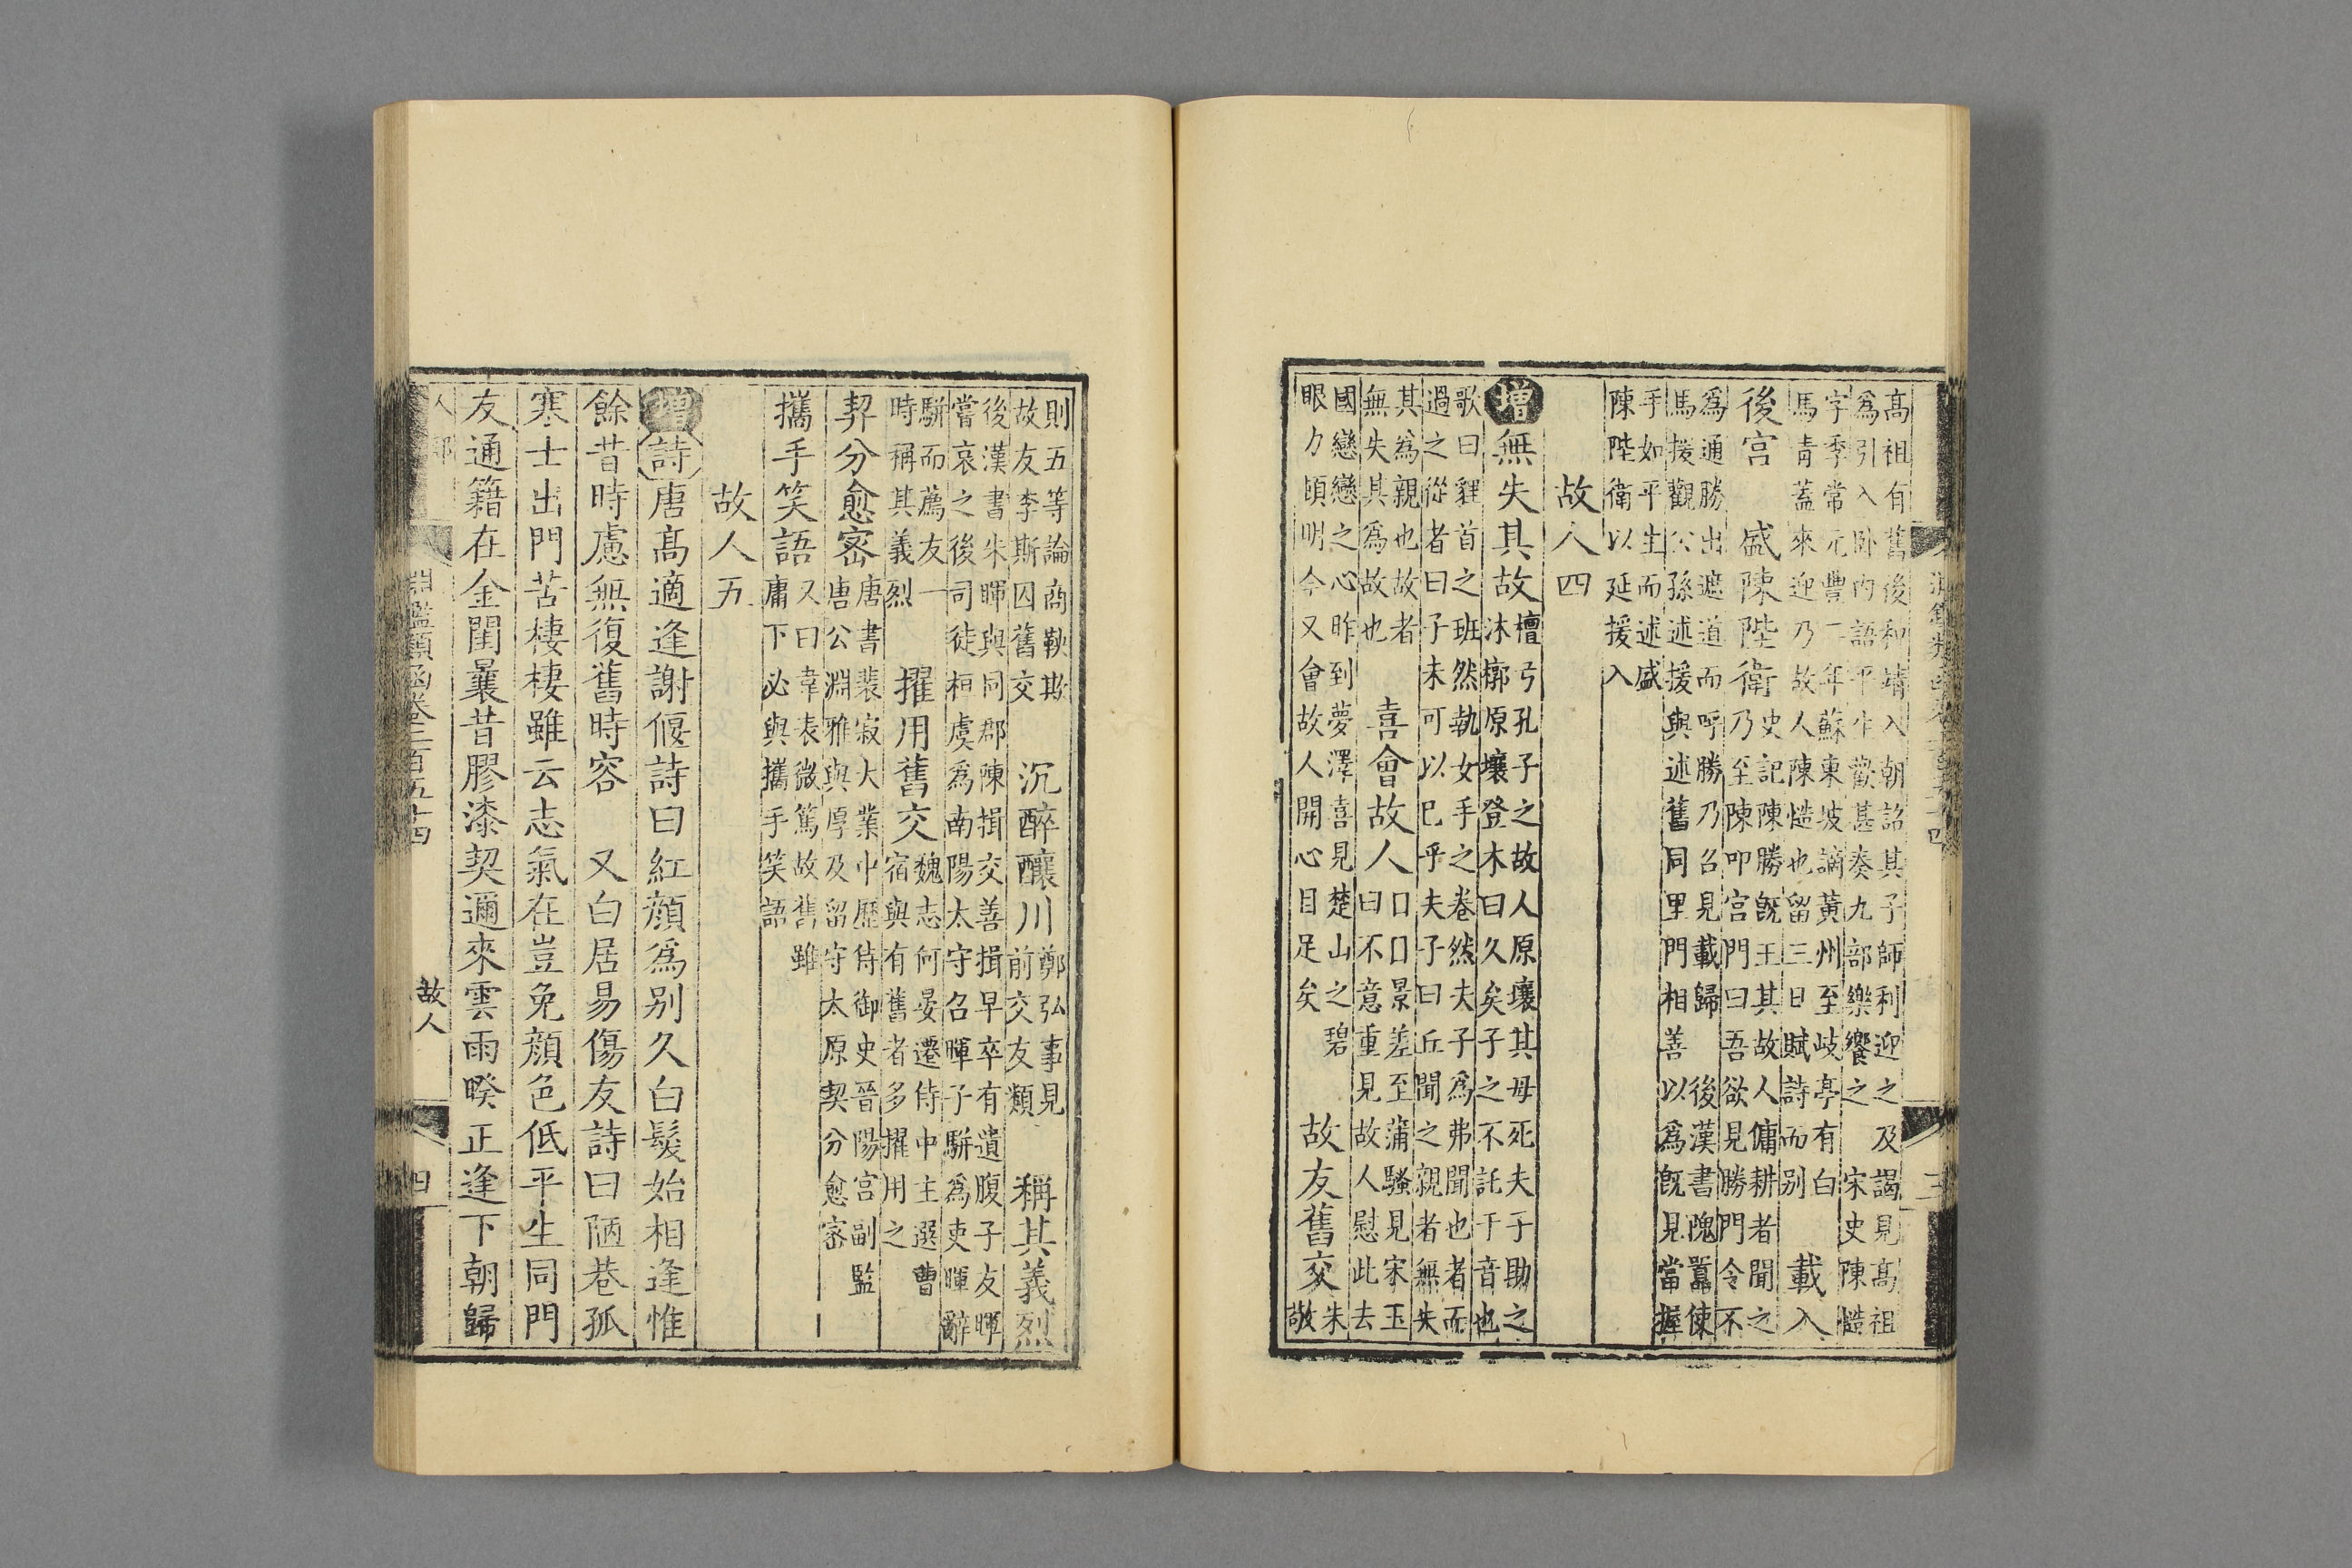 高祖有舊後和靖入朝詔其子師利迎之及謁見高祖
爲引入卧内語平生歡甚奏九部樂饗之　宋史陳慥
字季常元豐二年蘇東坡謫黃州至岐亭有白
馬青蓋來迎乃故人陳慥也留三日賦詩而別　載入
後宮　盛陳陛衛史記陳勝既王其故人傭耕者聞之
乃至陳叩宮門曰吾欲見勝門令不
爲通勝出遮道而呼勝乃召見載歸　後漢書隗囂使
馬援觀公孫述援與述舊同里門相善以爲既見當握
手如平生而述盛
陳陛衛以延援入
故人四
增無失其故檀弓孔子之故人原壤其母死夫子助之
沐槨原壤登木曰久矣子之不託于音也
歌曰貍首之班然執女手之卷然夫子爲弗聞也者而
過之從者曰子未可以已乎夫子曰丘聞之親者無失
其爲親也故者
無失其爲故也　喜會故人口口景差至蒲騷見宋玉
曰不意重見故人慰此去
國戀戀之心昨到夢澤喜見楚山之碧
眼力頓明今又會故人開心目足矣　故友舊交朱
敞
則五等論商鞅欺
故友李斯囚舊交　沉醉釀川鄭弘事見
前交友類　稱其義烈
後漢書朱暉與同郡陳揖交善揖早卒有遺腹子友暉
嘗哀之後司徒桓虞爲南陽太守召暉子駢爲吏暉辭
駢而薦友一
時稱其義烈　擢用舊交魏志何晏遷侍中主選曹
宿與有舊者多擢用之
契分愈密唐書裴寂大業中歷侍御史晉陽宮副監
唐公淵雅與厚及留守太原契分愈密
攜手笑語又曰韋表微篤故舊雖
庸下必與攜手笑語
故人五
增詩唐高適逢謝偃詩曰紅顏爲別久白髮始相逢惟
餘昔時慮無復舊時容　又白居易傷友詩曰陋巷孤
寒士出門苦棲棲雖云志氣在豈免顏色低平生同門
友通籍在金閨曩昔膠漆契邇來雲雨睽正逢下朝歸
淵鑑類函卷二百五十四
故人
四